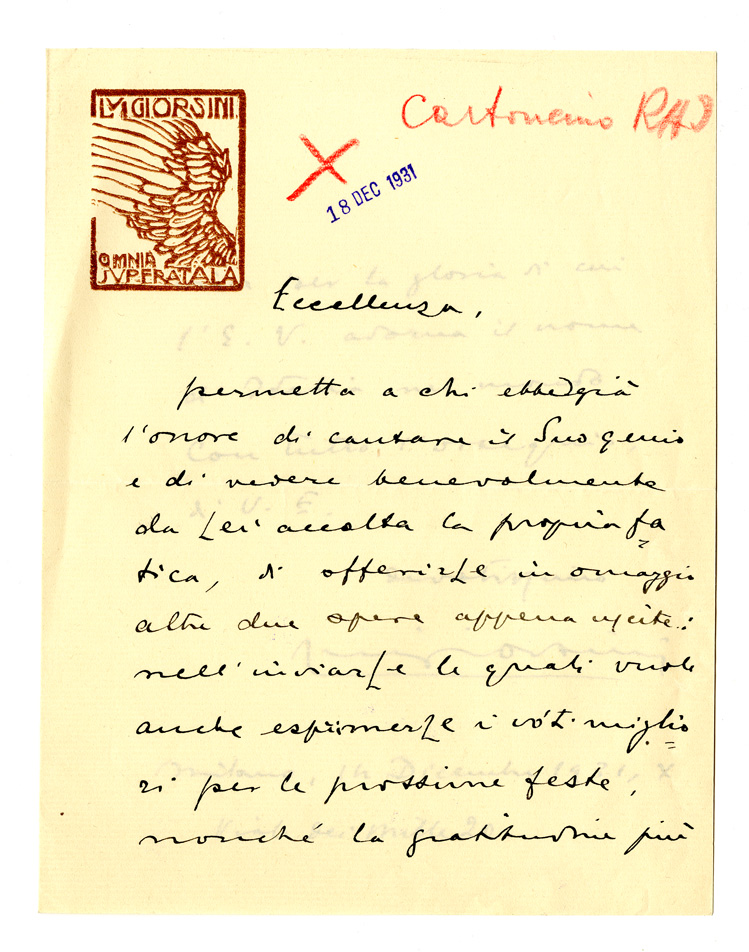 LVIGI ORSINI
OMNIA
SVPERAT ALA
Cartoncino
18 DEC 1931
Eccellenza,
permetta a chi ebbe già
l'onore di cantare il Suo genio
e di vedere benevolmente
da Lei accolta la propria fa
tica, di offerirLe in omaggio
altre due opere appena uscite:
nell'inviarLe le quali vuole
anche esprimerLe i voti miglio
ri per le prossime feste,
nonché la gratitudine più